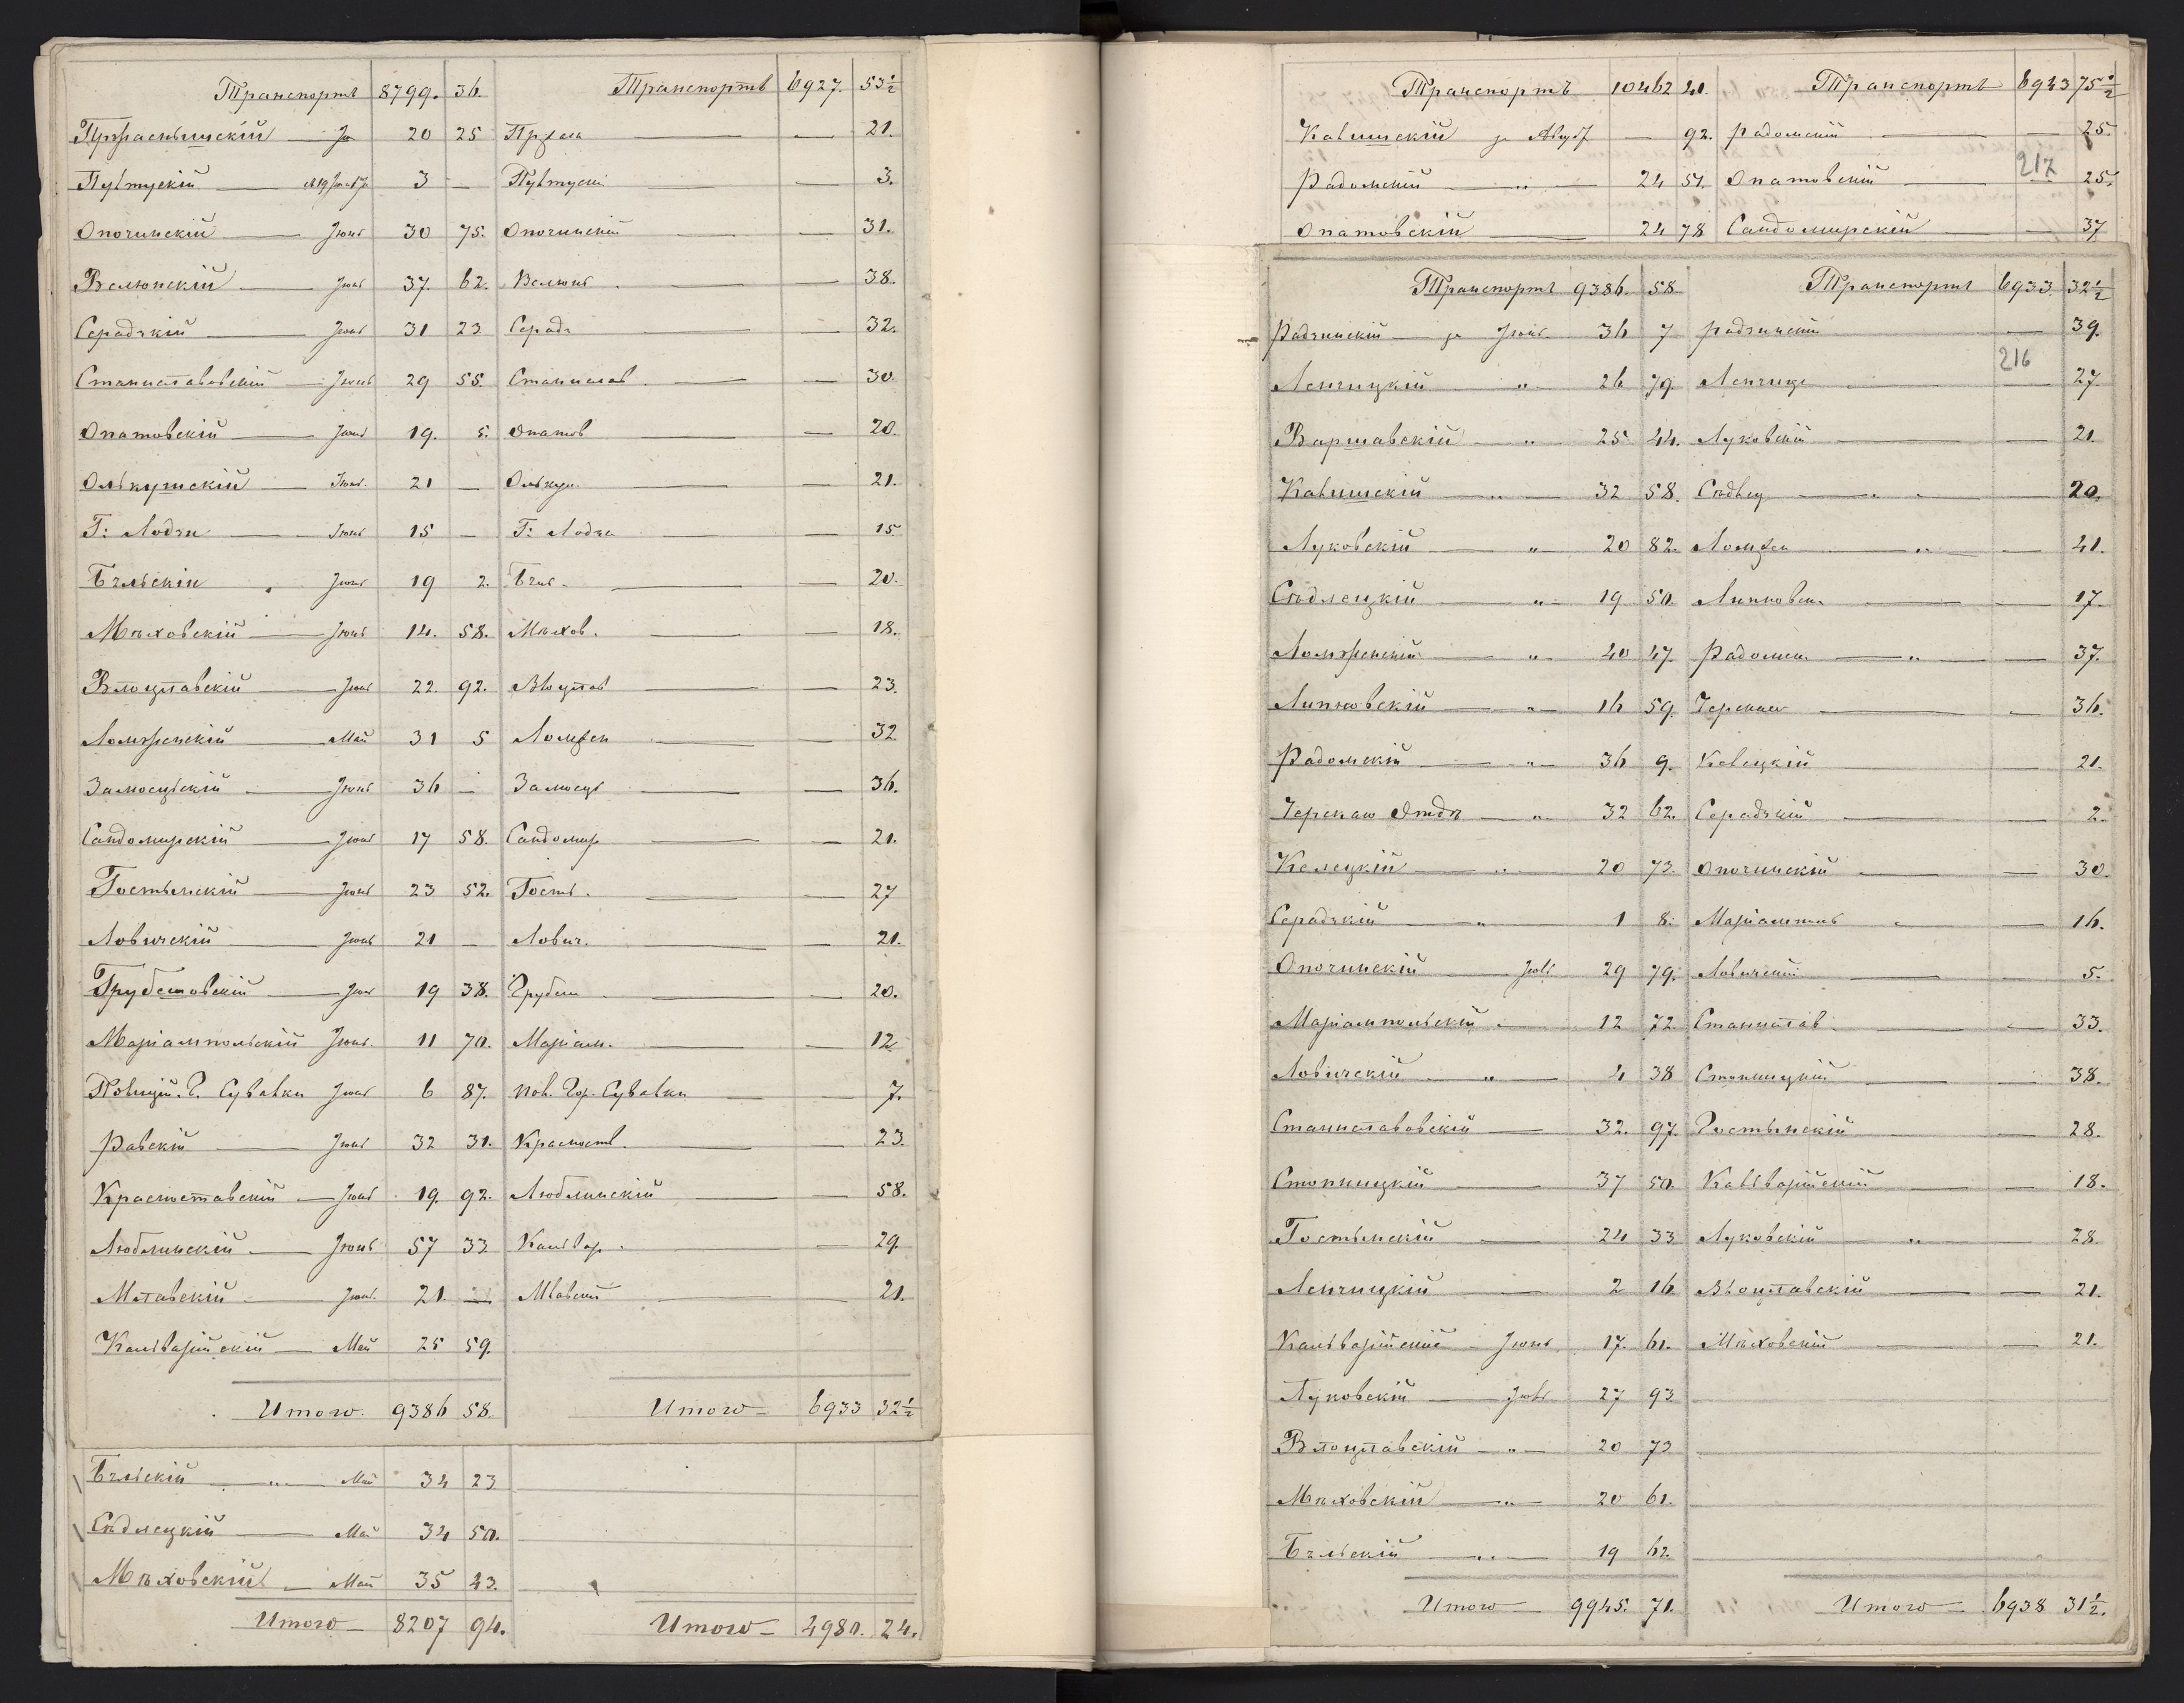 Транспортъ 8799. 36. Транспортъ 6927. 53½
Праснышскій 20 25 21.
Пултускій 3 — Пултускі — 3.
Опочинскій Іюнь 30 75. Опочинскій — 31.
Велюнскій Іюнь 37. 62. Велюнь — 38.
Серадзкій Іюнь 31 23 Серадз — 32.
Станиславовскій Іюнь 29 55. Станислав — 30.
Опатовскій Іюнь 19. 5. Опатов — 20.
Олькушскій Іюнь. 21 — Олькуш. — 21.
Г: Лодзи Іюнь 15 — Г: Лодзи — 15.
Бѣльскій Іюнь 19 2. Бѣль. — 20.
Мѣховскій Іюнь 14. 58. Мѣхов. — 18.
Влоцлавскій Іюнь 22. 92. Влоцлав — 23.
Ломженскій Май 31 5 Ломжен — 32
Замосцьскій Іюнь 36 — Замосць — 36.
Сандомирскій Іюнь 17 58. Сандомир — 21.
Гостынскій Іюнь 23 52. Гост. — 27
Ловичскій Іюнь 21 — Лович. — 21.
Грубешовскій Іюнь 19 38. Грубеш — 20.
Маріампольскій Іюнь. 11 70. Маріам. — 12
Полиціи. Г. Сувалки Іюнь 6 87. Пол. Гор. Сувалки — 7.
Равскій Іюнь 32 31. Красност. — 23.
Красноставскій Іюнь 19. 92. Люблинскій — 58.
Люблинскій Іюнь 57 33. Кальвар. — 29.
Млавскій Іюнь. 21. — Млавскій — 21.
Кальварійскій Май 25 59.
Итого. 9386 58. Итого 6933 32½
Бѣльскій „ Май 34 23
Сѣдлецкій Май 34 50.
Мѣховскій Май 35 43.
Итого 8207 94. Итого 4980. 24.
Транспортъ 10462 41. Транспортъ 6943 75½
Кальишскій за Август — 92. Радомскій — 25.
Радомскій „ 24 51. Опатовскій — 25.
217
Опатовскій 24 78 Сандомирскій — 37
Транспортъ 9386. 58. Транспортъ 6933. 32½
Радзинскій за Іюнь. 36 7 Радзинскій — 39.
216
Ленчицкій „ 26 79. Ленчиц — 27.
Варшавскій „ 25 44. Луковскій — 21.
Кальишскій „ 32 58. Сѣдлец — 20.
Луковскій „ 20 82. Ломжен „ — 41.
Сѣдлецкій „ 19 50. Липновск. — 17.
Ломженскій „ 40 47. Радомск. „ — 37.
Липновскій „ 16 59. — 36.
Радомскій „ 36 9. Келецкій 21.
„ 32 62. Серадзкій 2.
Келецкій „ 20 73. Опочинскій — 30.
Серадзкій „ 1 8. Маріамполь — 16.
Опочинскій Іюль 29 79. Ловичскій — 5.
Маріампольскій 12 72. Станислав. — 33.
Ловичскій „ 4 38 Стопницкій — 38.
Станиславовскій 32. 97. Гостынскій — 28.
Стопницкій 37 50. Кальварійскій — 18.
Гостынскій 24 33 Луковскій „ — 28.
Ленчицкій 2 16 Влоцлавскій — 21.
Кальварійскій Іюнь 17. 61. Мѣховскій — 21.
Луковскій Іюль 27 93
Влоцлавскій „ 20 73
Мѣховскій „ 20 61.
Бѣльскій „ 19 62.
Итого 9945. 71. Итого 6938 31½.